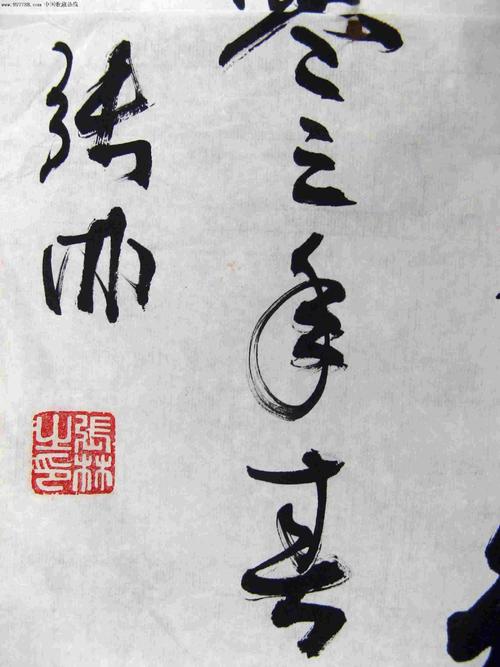 www.997788.com 中国收藏热线
零三年春
张林
張林之印